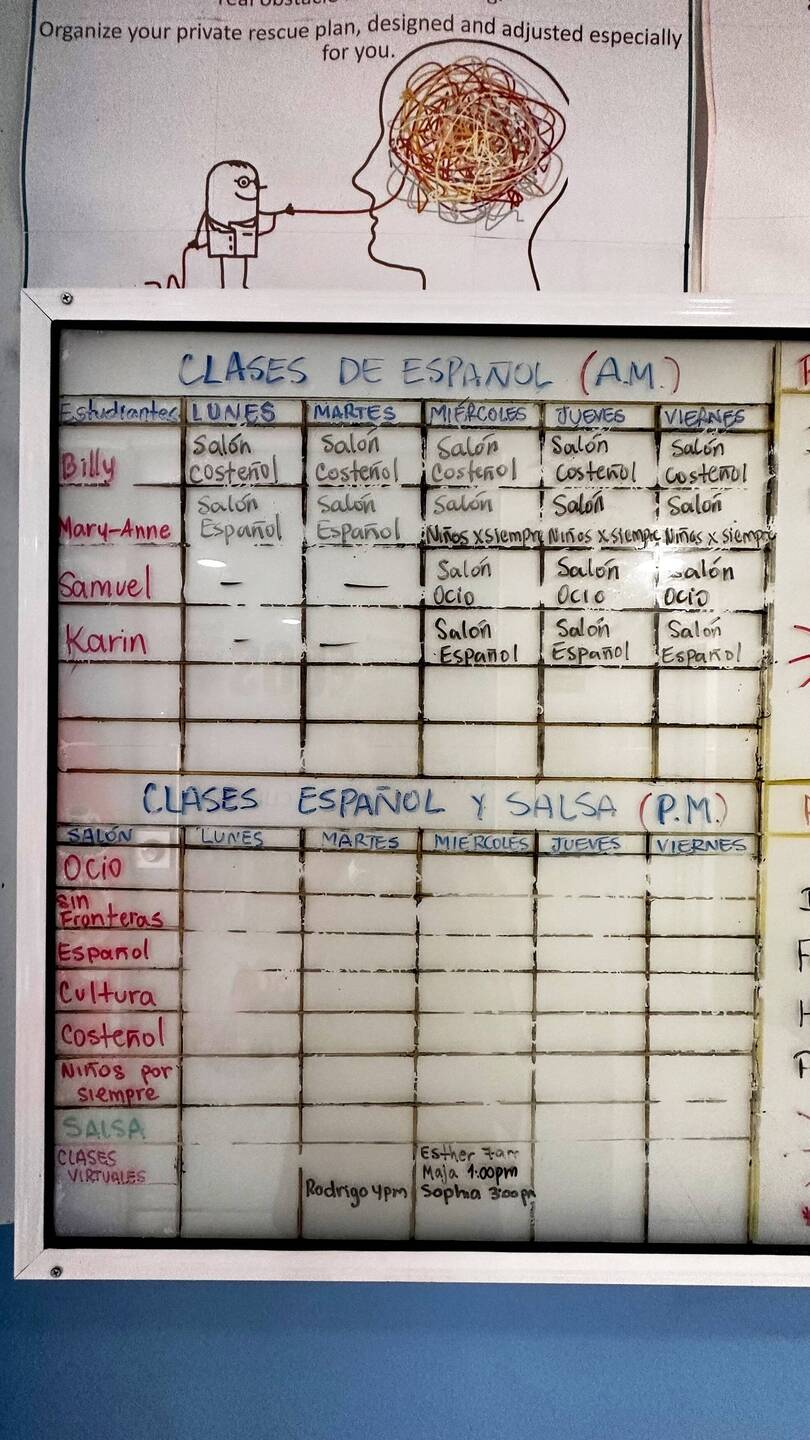 Organize your private rescue plan, designed and adjusted especially
for you.
CLASES DE ESPAÑOL (A.M.)
Estudiantes LUNES MARTES MIÉRCOLES JUEVES VIERNES
Billy Salón Costeñol Salón Costeñol Salón Costeñol Salón Costeñol Salón Costeñol
Mary-Anne Salón Español Salón Español Salón Niños x siempre Salón Niños x siempre Salón Niños x siempre
Samuel — — Salón Ocio Salón Ocio Salón Ocio
Karin - — Salón Español Salón Español Salón Español
CLASES ESPAÑOL Y SALSA (P.M.)
SALÓN LUNES MARTES MIÉRCOLES JUEVES VIERNES
Ocio
sin
Fronteras
Español
Cultura
Costeñol
Niños por
siempre
SALSA
CLASES
VIRTUALES
Rodrigo 4pm
Esther 7am
Maja 1:00pm
Sophia 3:00pm